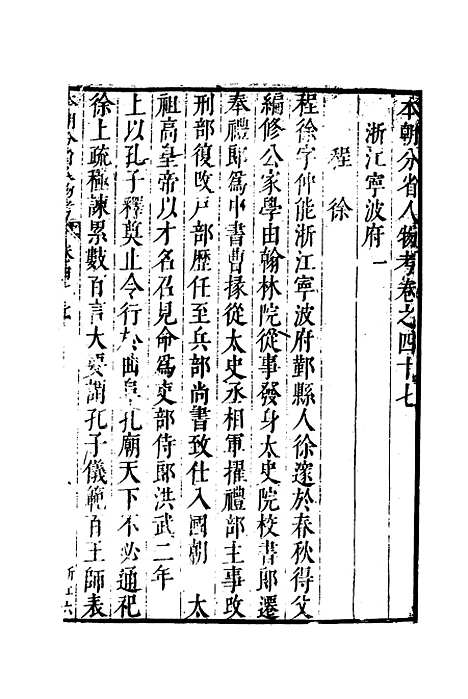 本朝分省人物考卷之四十七
浙江寧波府一
程徐
程徐字仲能浙江寧波府鄞縣人徐邃於春秋得父
編修公家學由翰林院從事發身太史院校書郎遷
奉禮郎爲中書曹掾從太史丞相軍擢禮部主事改
刑部復改戸部歷任至兵部尚書致仕入國朝 太
祖高皇帝以才名召見命爲吏部侍郎洪武二年
上以孔子釋奠止令行於曲阜孔廟天下不必通祀
徐上疏極諫累數百言大要謂孔子儀範百王師表